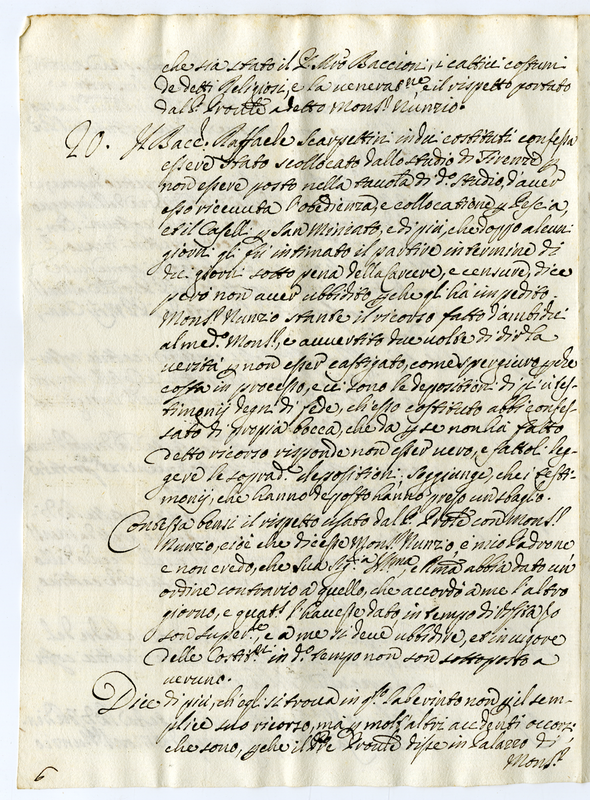 che sia stato il P. Mro Baccioni, i cattivi costumi
de detti Religiosi, e la veneraz.ne, e il rispetto portato
dal P. Provle a detto Mons.r Nunzio.
20. Il Bacc. Raffaele Scarpettini in due costituti confessa
essere stato scollocato dallo studio di Firenze p
non essere posto nella tavola di d.o studio, d'aver
esso ricevuta l'obedienza, e collocatione p Pescia,
et il Caselli p San Miniato, e di più, che doppo alcuni
giorni gli fù intimato il partire in termine di
due giorni sotto pena della carcere, e censure, dice
però non aver ubbidito p che gl'hà impedito
Mons.r Nunzio stante il ricorso fatto d'ambidue
al med.o Mons.r, e avvertito due volte di dir la
verità p non esser castigato, come spergiuro p che
costa in processo, e ci sono le depositioni di più tes-
timonij degni di fede, ch'esso costituto abbi confes-
sato di propia bocca, che da p se non hà fatto
detto ricorso risponde non esser vero, e fattoli leg-
gere le soprad.e depositioni, soggiunge, che i testi-
monij, che hanno deposto hanno preso un sbaglio.
Confessa bensì il rispetto usato dal P. Provle con Mons.r
Nunzio, cioè che dicesse Mons.r Nunzio, è mio Padrone
e non credo, che sua Sig.ria Illma, e Rma abbia dato un'
ordine contrario a quello, che accordò a me l'altro
giorno, e quat.s l'havesse dato in tempo di visita, Io
son super.re, e a me si deve ubbidire, et in vigore
delle Costit.ni in d.o tempo non son sottoposto a
veruno.
Dice di più, ch'egli si trova in q.o laberinto non p il sem-
plice suo ricorso, mà p molt'altri accidenti occorsi
che sono, p che il Pre Provle disse in Palazzo di
Mons.r
6